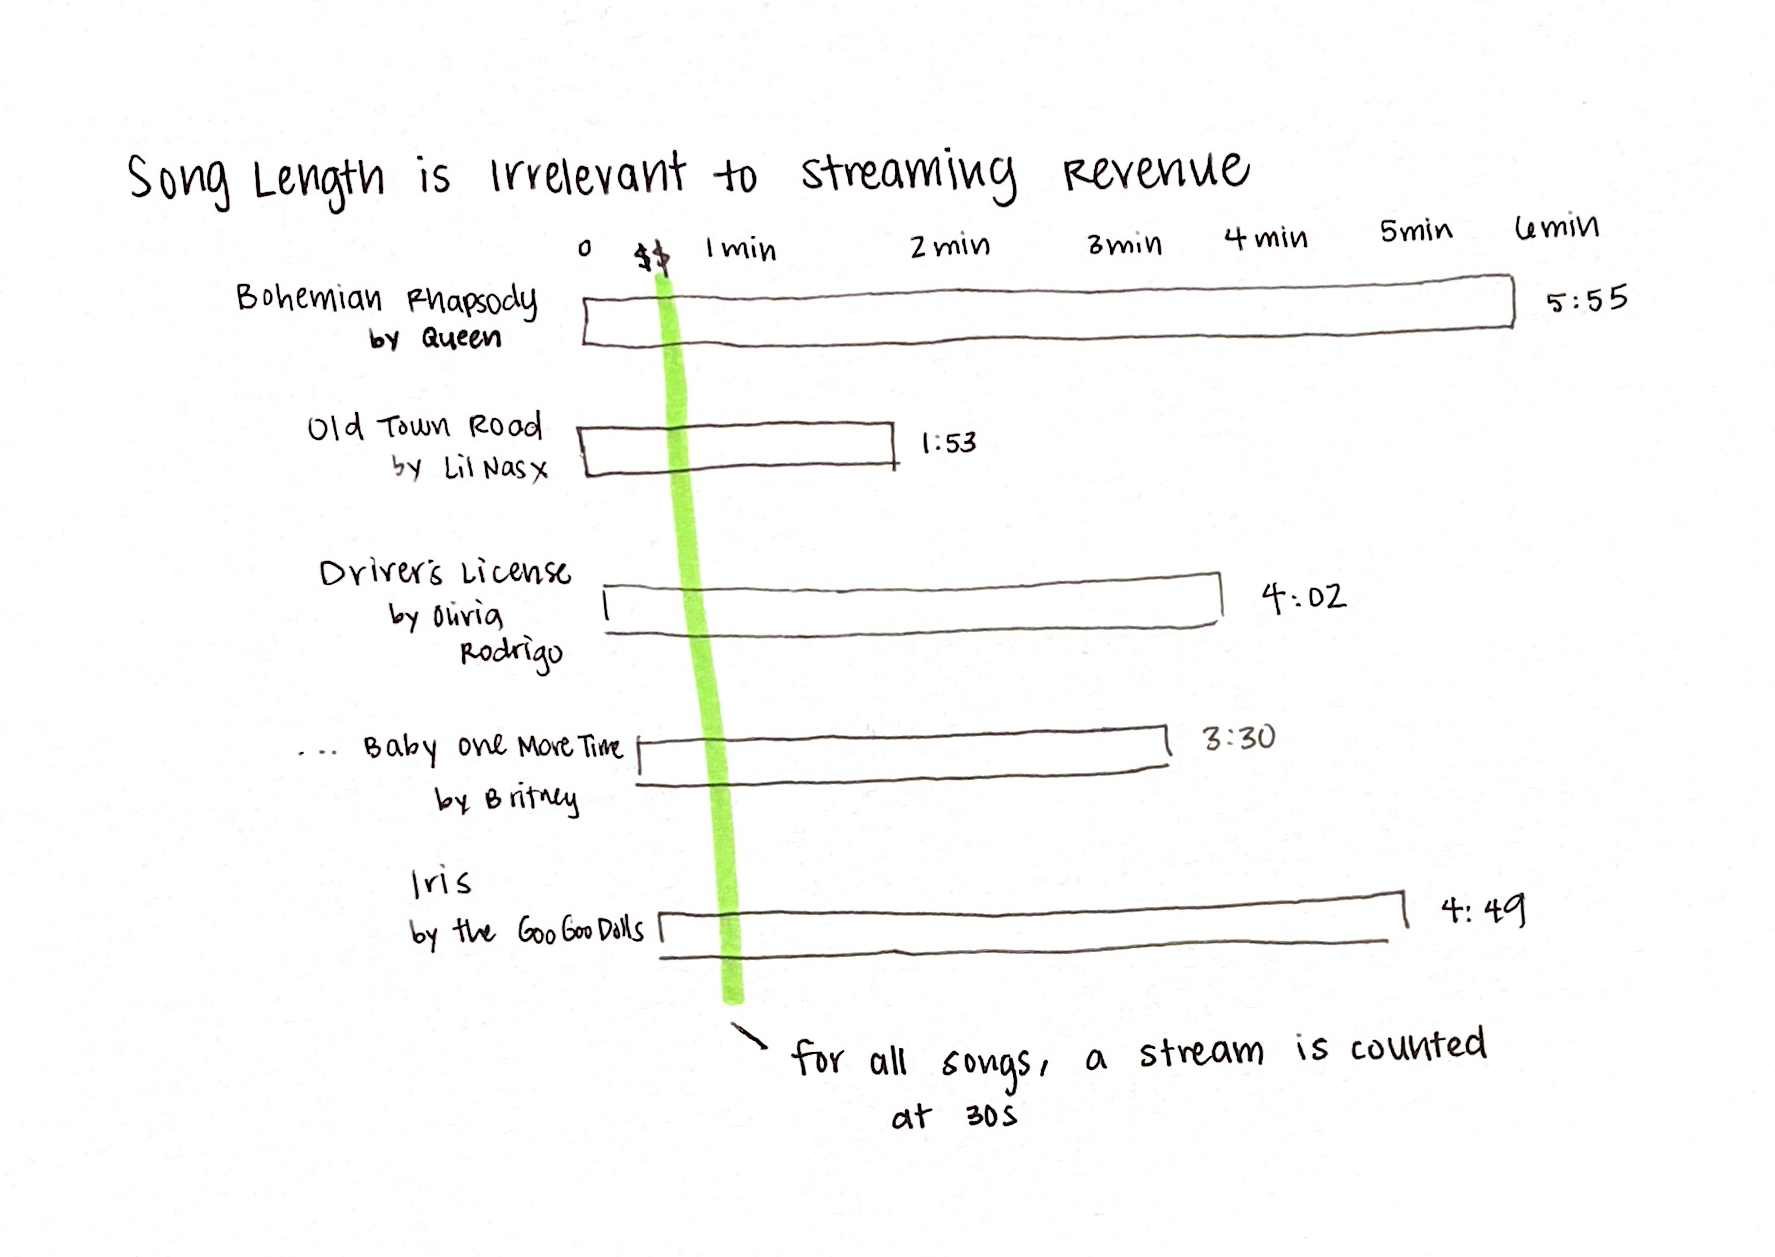 Song Length is Irrelevant to Streaming Revenue
0 $$ 1 min 2 min 3 min 4 min 5 min 6 min
Bohemian Rhapsody
by Queen
5:55
Old Town Road
by Lil Nas X
1:53
Driver's License
by Olivia
Rodrigo
4:02
... Baby One More Time
by Britney
3:30
Iris
by the Goo Goo Dolls
4:49
for all songs, a stream is counted
at 30s